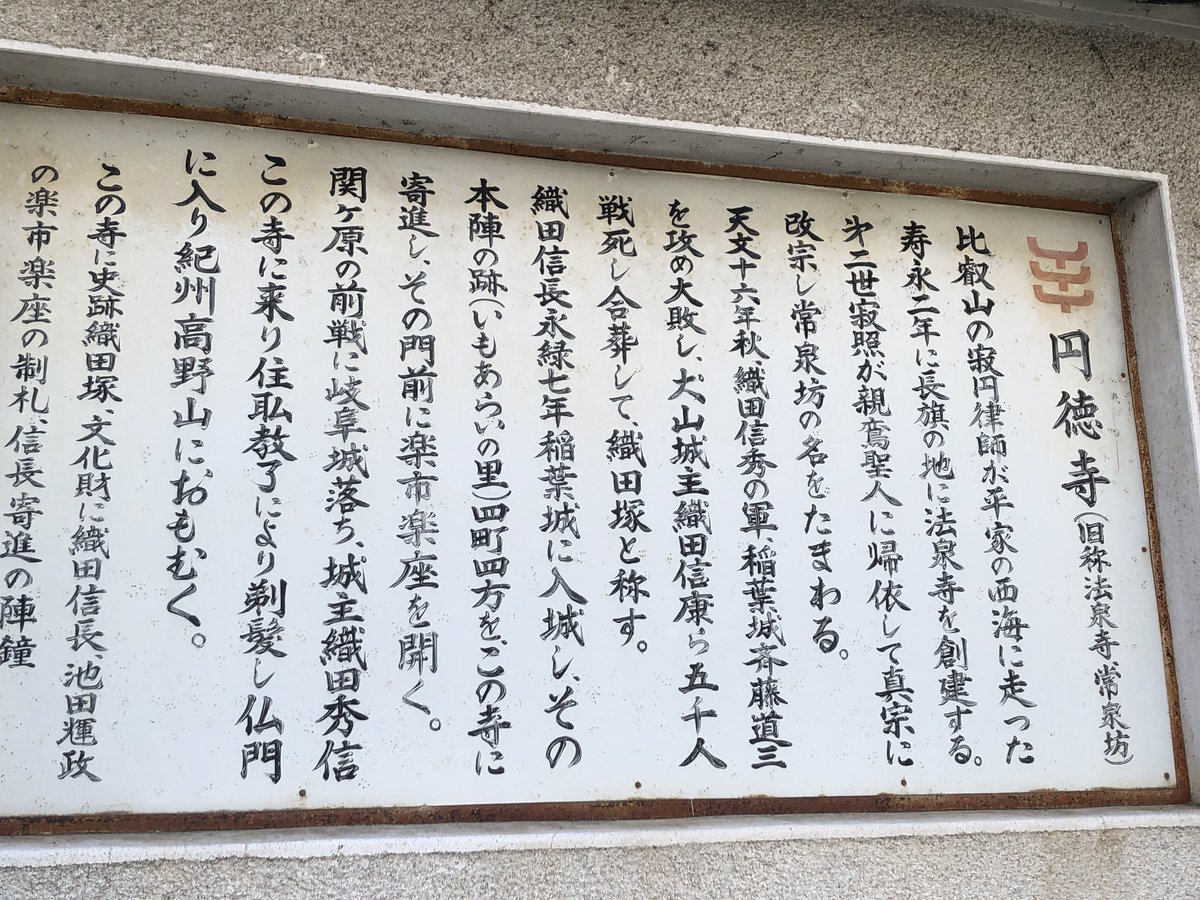 円徳寺(旧称法泉寺常泉坊)
比叡山の寂円律師が平家の西海に走った
寿永二年に長旗の地に法泉寺を創建する。
㐧二世寂照が親鸞聖人に帰依して真宗に
改宗し常泉坊の名をたまわる。
天文十六年秋、織田信秀の軍、稲葉城斉藤道三
を攻め大敗し、犬山城主織田信康ら五千人
戦死し合葬して、織田塚と称す。
織田信長永緑七年稲葉城に入城し、その
本陣の跡(いもあらいの里)四町四方を、この寺に
寄進し、その門前に楽市楽座を開く。
関ヶ原の前戦に岐阜城落ち、城主織田秀信
この寺に来り住耺教了により剃髪し仏門
に入り紀州高野山におもむく。
この寺に史跡織田塚、文化財に織田信長、池田輝政
の楽市楽座の制札、信長寄進の陣鐘